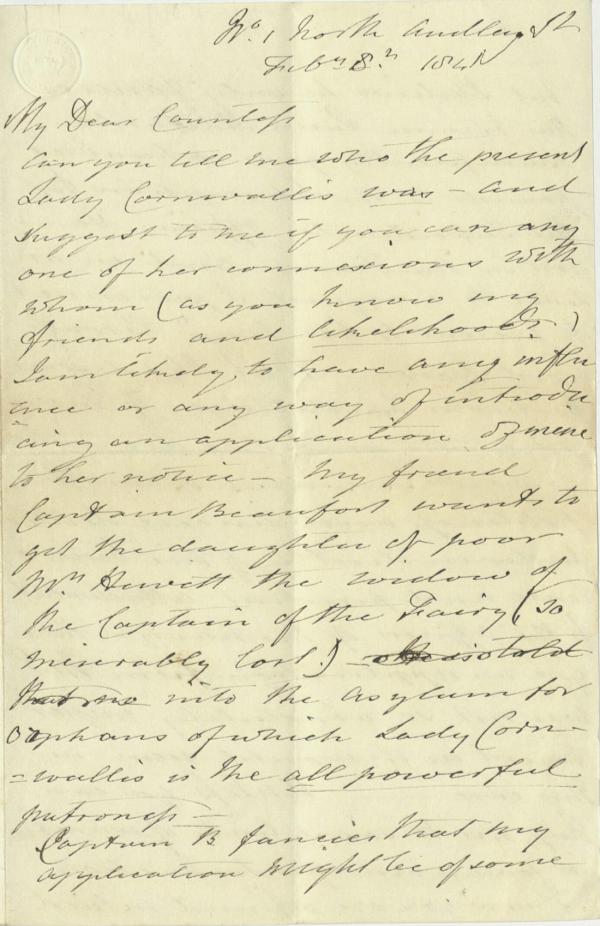 No. 1 North Audley St
Feby 8.th 1841
My Dear Countess
Can you tell me who the present
Lady Cornwallis was – and
suggest to me if you can any
one of her connexions with
whom (as you know my
friends and likelihoods)
I am likely to have any influ
ence or any way of introdu
cing an application of mine
to her notice – My friend
Captain Beaufort wants to
get the daughter of poor
Mrs Hewett the widow of
the Captain of the Fairy (so
miserably lost!) – She is told
that no into the asylum for
Orphans of which Lady Corn-
-wallis is the all powerful
patroness –
Captain B fancies that my
application might be of some